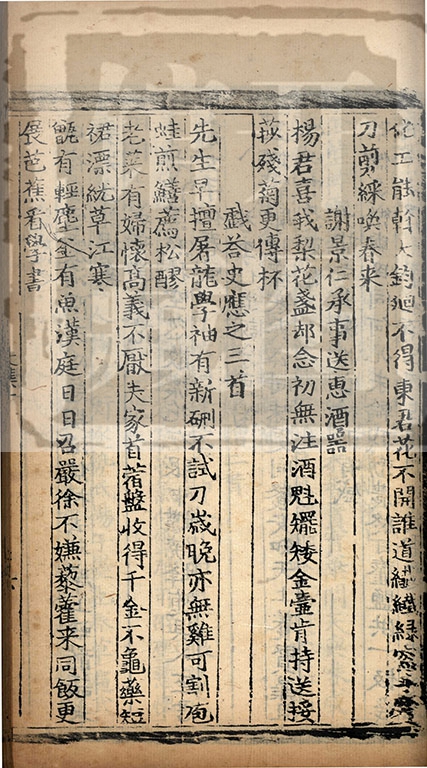 化工能斡大鈞迴不得東君花不開誰道纖纖綠窓手
刀剪綵喚春来
謝景仁承事送惠酒器
楊君喜我梨花盞却念初無注酒魁矲矮金壷肯持送挼
莎殘菊更傳杯
戲荅史應之三首
先生早擅屠龍學袖有新硎不試刀歳晚亦無雞可割庖
蛙煎鱔薦松醪
老莱有婦懷高義不厭夫家苜蓿盤收得千金不龜藥短
裙漂絖草江寒
甑有輕塵釡有魚漢庭日日召嚴徐不嫌藜藿来同飯更
展芭蕉看學書